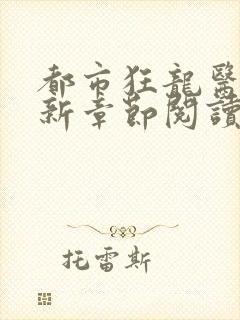 都市狂龍醫
新章節閱讀
托雷斯